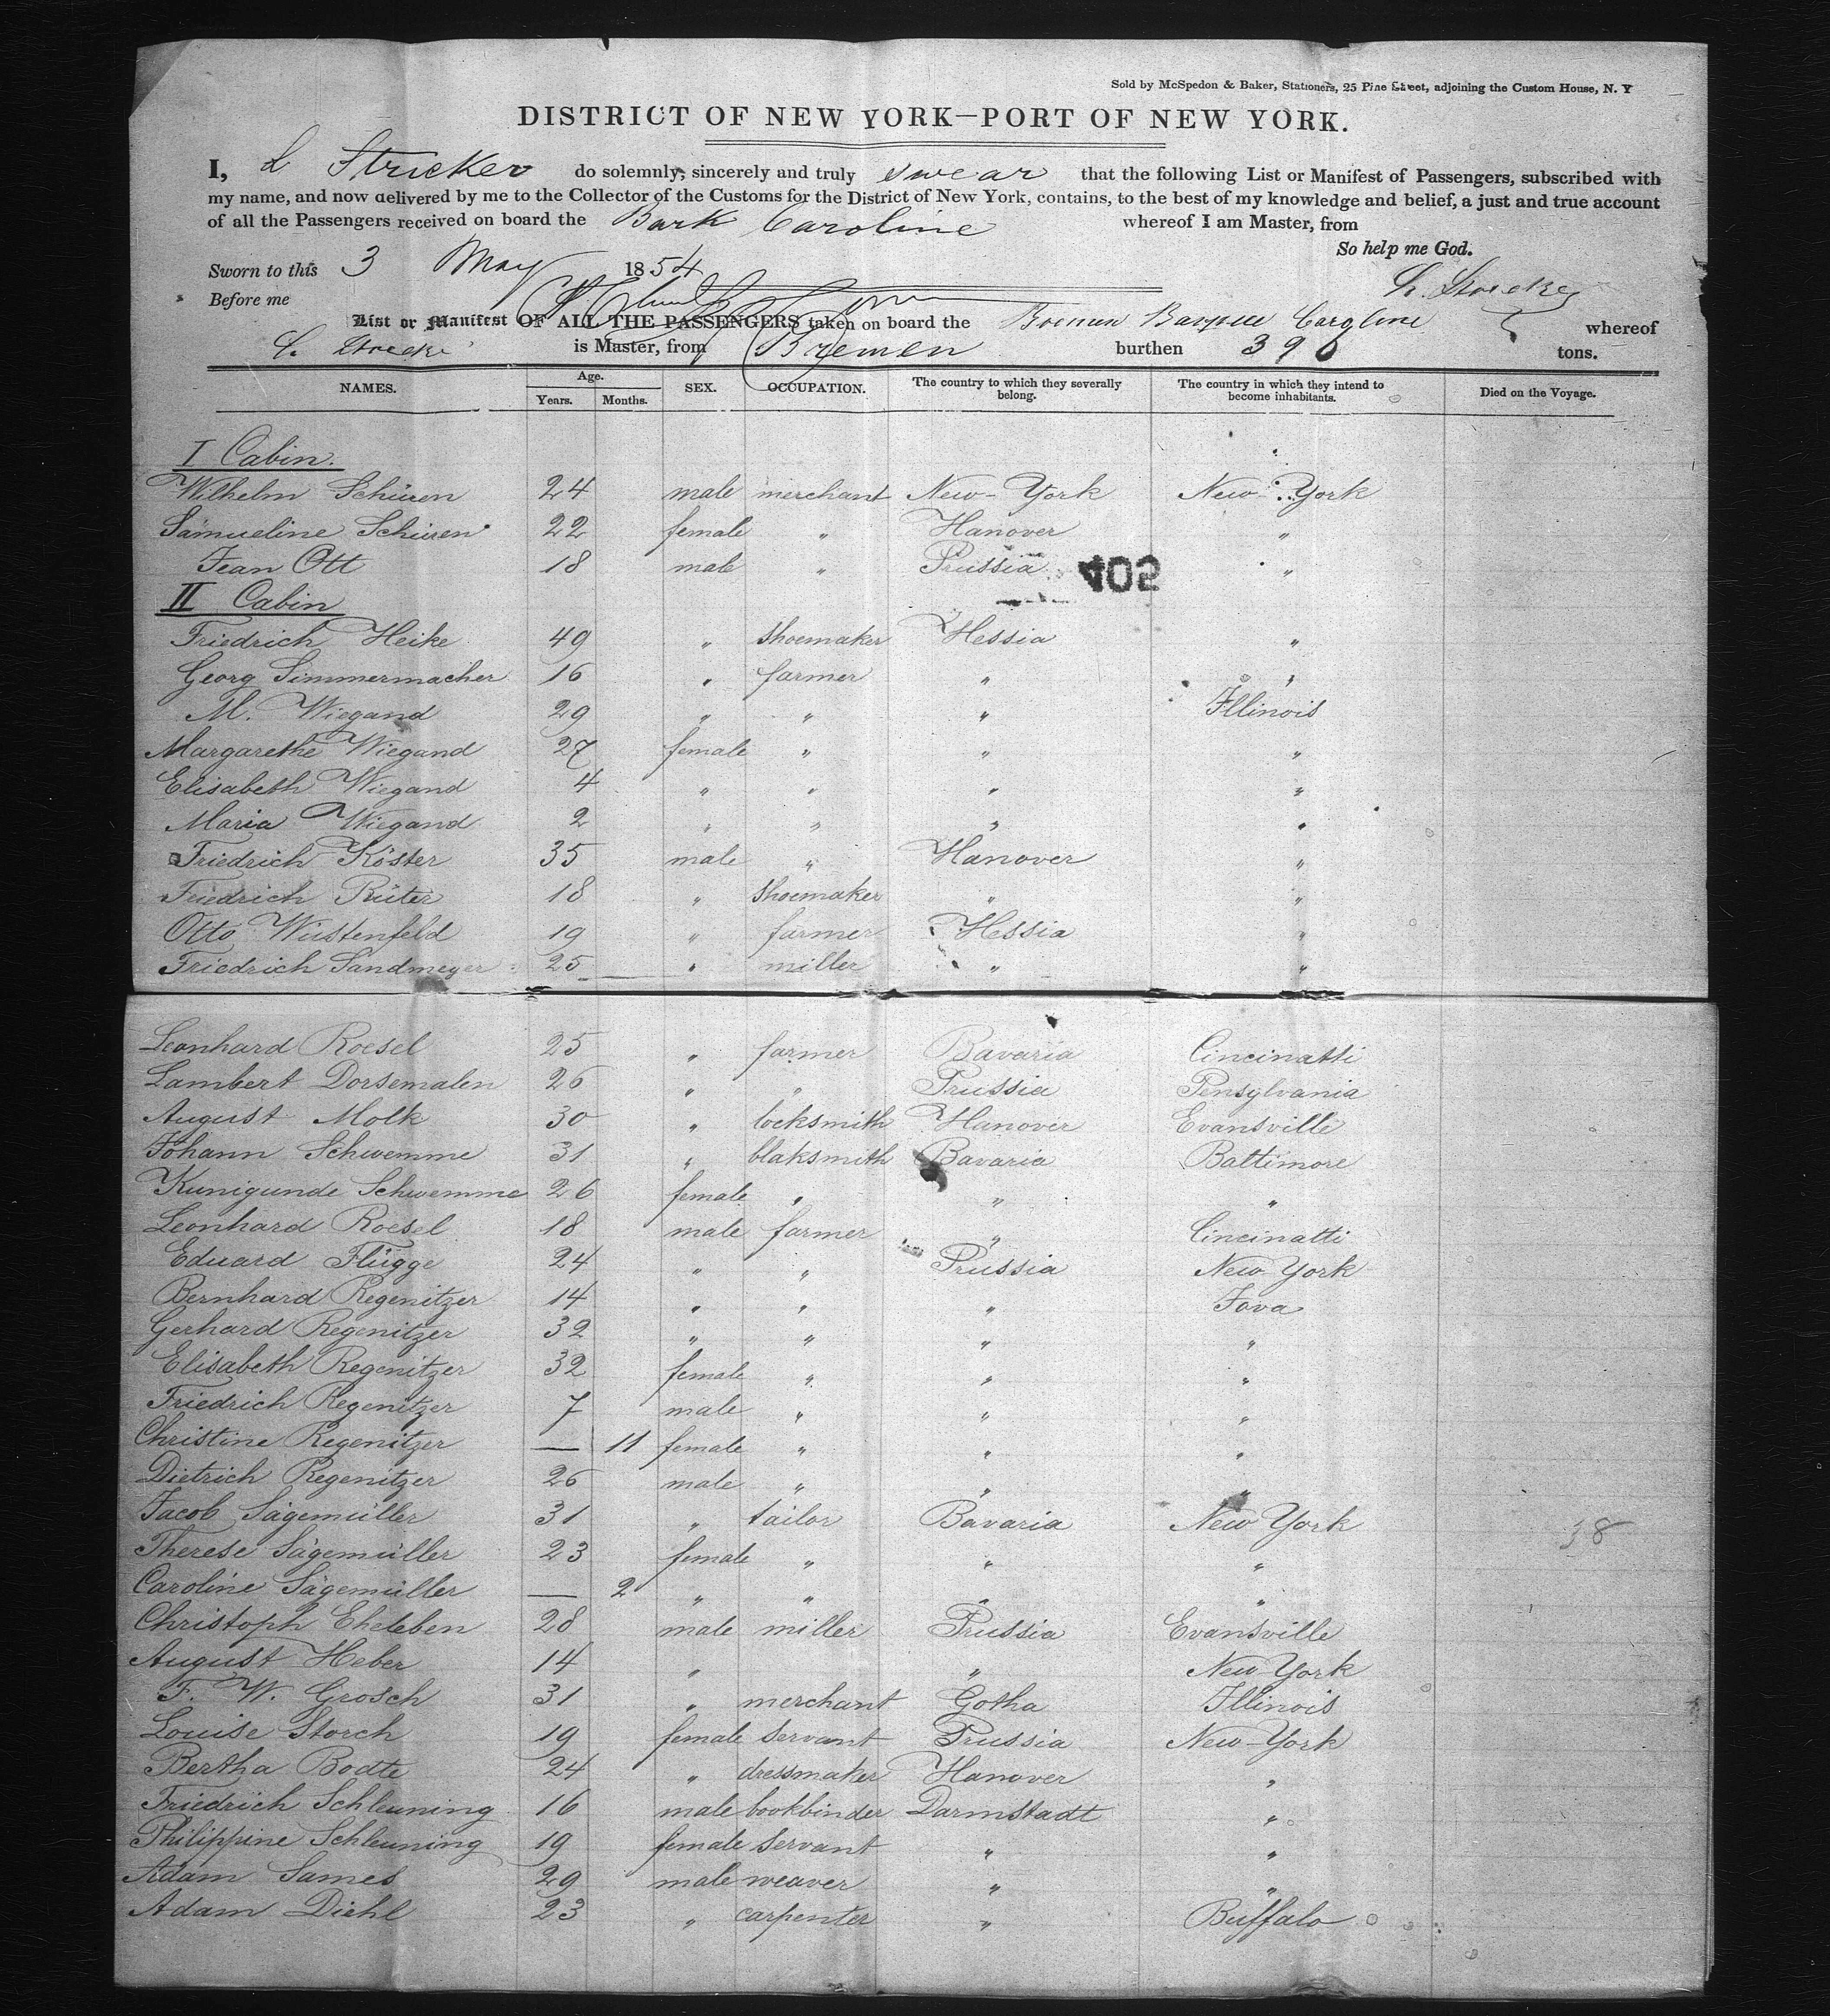 Sold by McSpedon & Baker, Stationers, 25 Pine Street, adjoining the Custom House, N. Y
DISTRICT OF NEW YORK—PORT OF NEW YORK.
I, L Stricker do solemnly, sincerely and truly swear that the following List or Manifest of Passengers, subscribed with
my name, and now delivered by me to the Collector of the Customs for the District of New York, contains, to the best of my knowledge and belief, a just and true account
of all the Passengers received on board the Bark Caroline whereof I am Master, from
So help me God.
Sworn to this 3 May 1854
Before me
List or Manifest OF ALL THE PASSENGERS taken on board the Bremen Caroline whereof
is Master, from Bremen burthen 396 tons.
NAMES. Age. Years. Months. SEX. OCCUPATION. The country to which they severally belong. The country in which they intend to become inhabitants. Died on the Voyage.
I Cabin.
Wilhelm Schüren 24 male merchant New-York New-York
Samueline Schüren 22 female " Hanover "
Jean Ott 18 male " Prussia 402 "
II Cabin
Friedrich Heike 49 " shoemaker Hessia "
Georg Simmermacher 16 " farmer " "
M. Wiegand 29 " " " Illinois
Margarethe Wiegand 27 female " " "
Elisabeth Wiegand 4 " " " "
Maria Wiegand 2 " " " "
Friedrich Köster 35 male " Hanover "
Friedrich Rüter 18 " shoemaker " "
Otto Wüstenfeld 19 " farmer Hessia "
Friedrich Sandmeyer 25 " miller " "
Leonhard Roesel 25 " farmer Bavaria Cincinatti
Lambert Dorsemalen 26 " " Prussia Pensylvania
August Molk 30 " locksmith Hanover Evansville
Johann Schwemme 31 " blaksmith Bavaria Baltimore
Kunigunde Schwemme 26 female " " "
Leonhard Roesel 18 male farmer " Cincinatti
Eduard Flügge 24 " " Prussia New-York
Bernhard Regenitzer 14 " " " Jova
Gerhard Regenitzer 32 " " " "
Elisabeth Regenitzer 32 female " " "
Friedrich Regenitzer 7 male " " "
Christine Regenitzer — 11 female " " "
Dietrich Regenitzer 26 male " " "
Jacob Sägemüller 31 " tailor Bavaria New York
Therese Sägemüller 23 female " " "
Caroline Sägemüller — 2 " " " "
Christoph Eheleben 28 male miller Prussia Evansville
August Heber 14 " " New-York
F. W. Grosch 31 " merchant Gotha Illinois
Louise Storch 19 female servant Prussia New-York
Bertha Bodte 24 " dressmaker Hanover "
Friedrich Schleuning 16 male bookbinder Darmstadt "
Philippine Schleuning 19 female servant " "
Adam Sames 29 male weaver " "
Adam Diehl 23 " carpenter " Buffalo
38